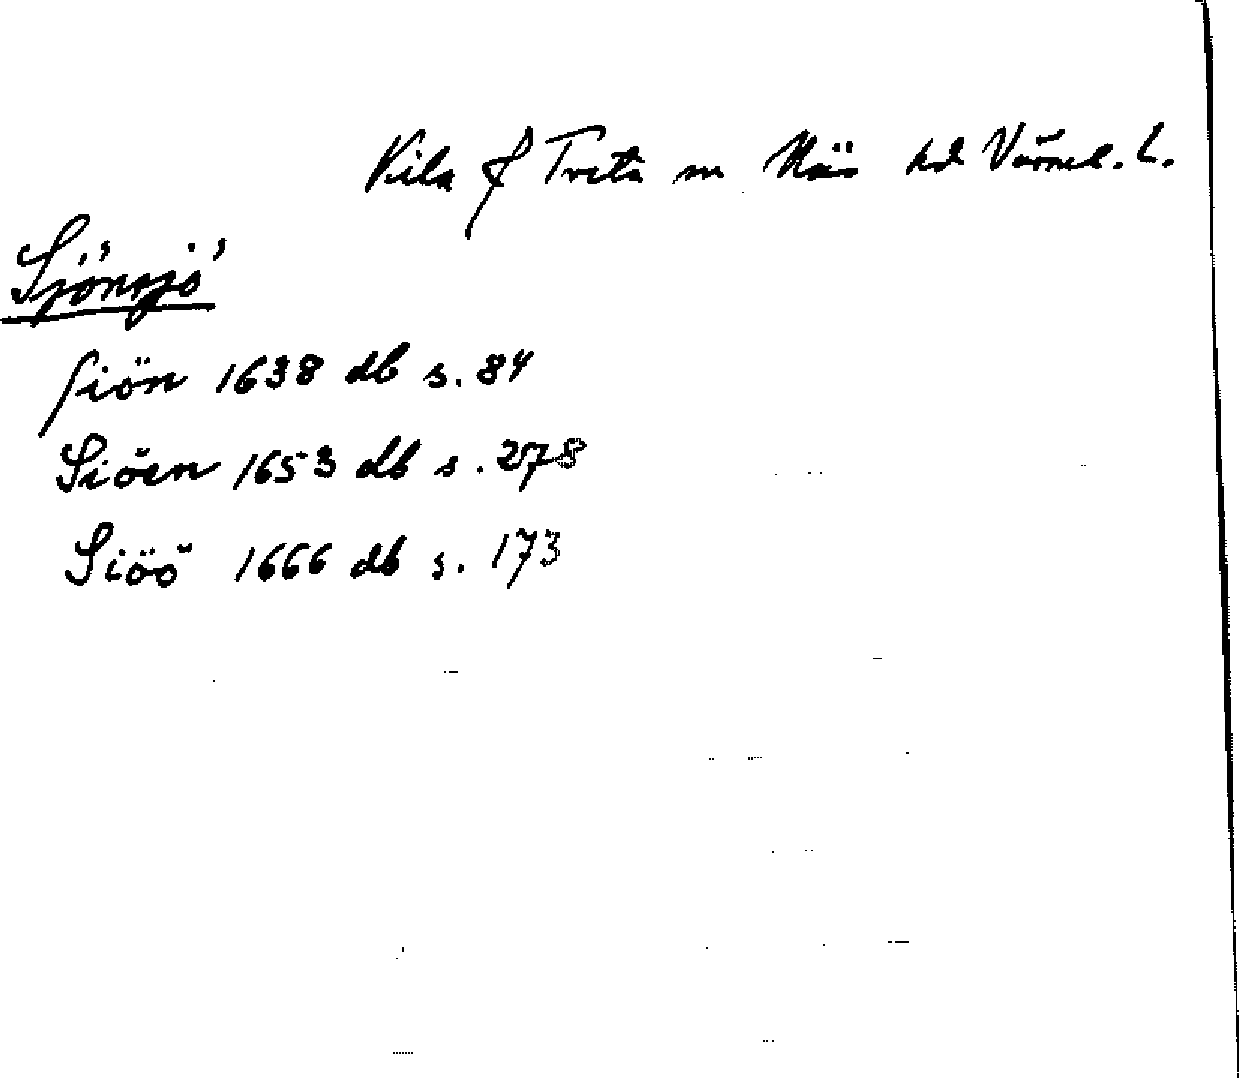 Kila f Treta sn Näs hd Värml. L.
Sjönsjö
Siön 1638 db s. 84
Siöen 1653 db s. 278
Siöö 1666 db s. 173